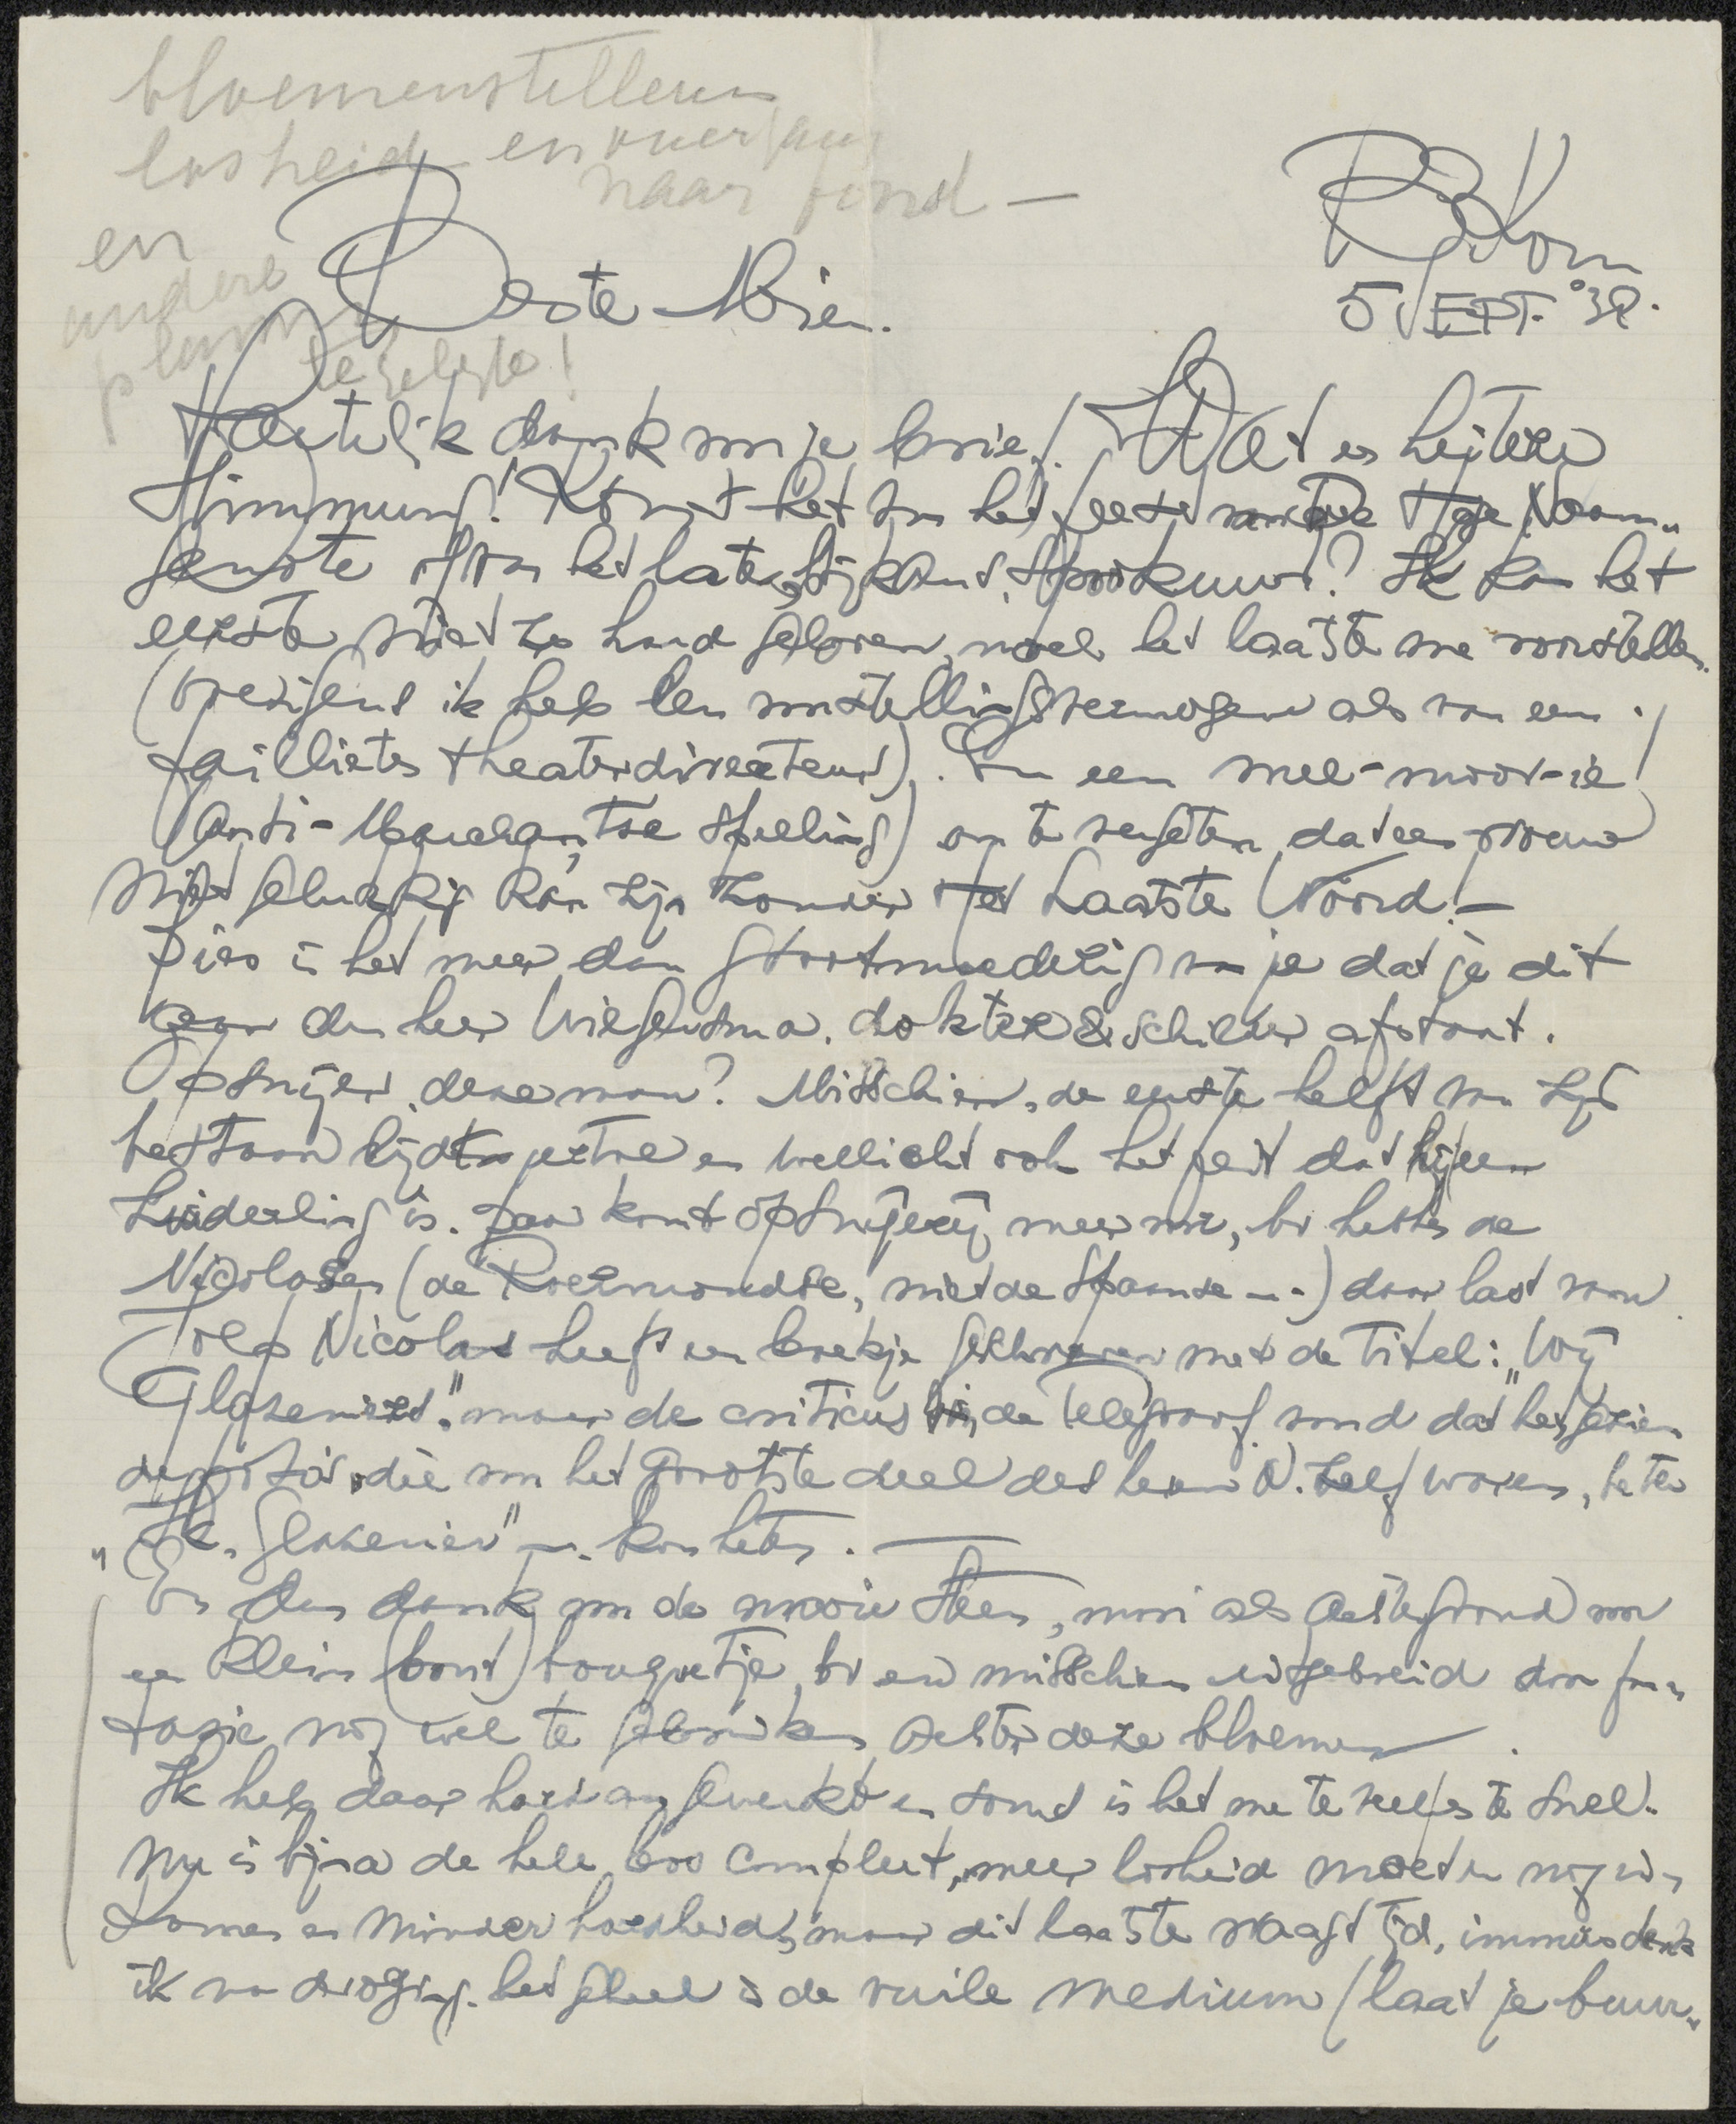 bloemenstilleven
losheid en overgang
naar fond —
en
andere
plannen
te Zeleste!
Beste Mien.
5 SEPT. °38.
Hartelijk dank voor je brief! Wat een heitere
Stimmung! Komt het van het feest van de Hge Naam„
genote of van het later blijkend spookuur? Ik kan het
eerste niet zo hard geloven, noch het laatste me voorstellen.
(overigens ik heb een voorstellingsvermogen als van een
failliete theaterdirecteur). Om een
(Anti-Marchantse spelling) om te vergeten dat een vrouw
niet gelukkig kan zijn zonder Het Laatste Woord! —
Dies is het meer dan grootmoedig van je dat je dit
aan den heer Wiegersma, dokter & schilder afstaat.
Opsnijer, deze man? Misschien, de eerste helft van zijn
bestaan lijdt en wellicht ook het feit dat hij een
Zuiderling is. Daar komt opsnijerij meer voor, bv hebben de
Nicolasen (de Roermondse, niet de Spaanse -.) daar last van
Joep Nicolas heeft een boekje geschreven met de titel: „Wij
Glazeniers". maar de criticus in de Telegraaf vond dat het, gezien
de foto's, die voor het grootste deel des heren N. zelf waren, beter
„Ik, Glazenier" kon heten. —
En dan dank voor de mooie steen, mooi als achtergrond voor
een klein (bont) bouquetje, bv en misschien uitgebreid door fan
tasie nog wel te gebruiken achter deze bloemen.
Ik heb daar hard aan gewerkt en soms is het me te veel en te snel.
Nu is bijna de hele boo compleet, meer losheid moet er nog in
komen en minder hardheid, maar dit laatste vraagt tijd, immers denk
ik na droging. het geheel is de vuile medium (laat je buur„